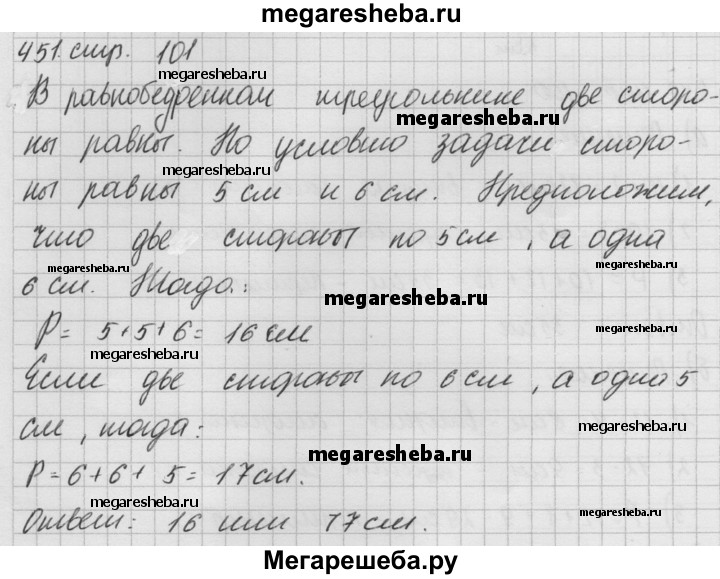 megaresheba.ru
451. стр. 101
megaresheba.ru
В равнобедренном треугольнике две сторо-
megaresheba.ru
ны равны. По условию задачи сторо-
megaresheba.ru
ны равны 5 см и 6 см. Предположим,
что две стороны по 5 см, а одна
megaresheba.ru megaresheba.ru
6 см. Тогда:
megaresheba.ru
P = 5+5+6 = 16 см
megaresheba.ru megaresheba.ru
Если две стороны по 6 см, а одна 5
см, тогда:
megaresheba.ru
P = 6+6+ 5 = 17 см.
megaresheba.ru megaresheba.ru
Ответ: 16 или 17 см.
Мегарешеба.ру